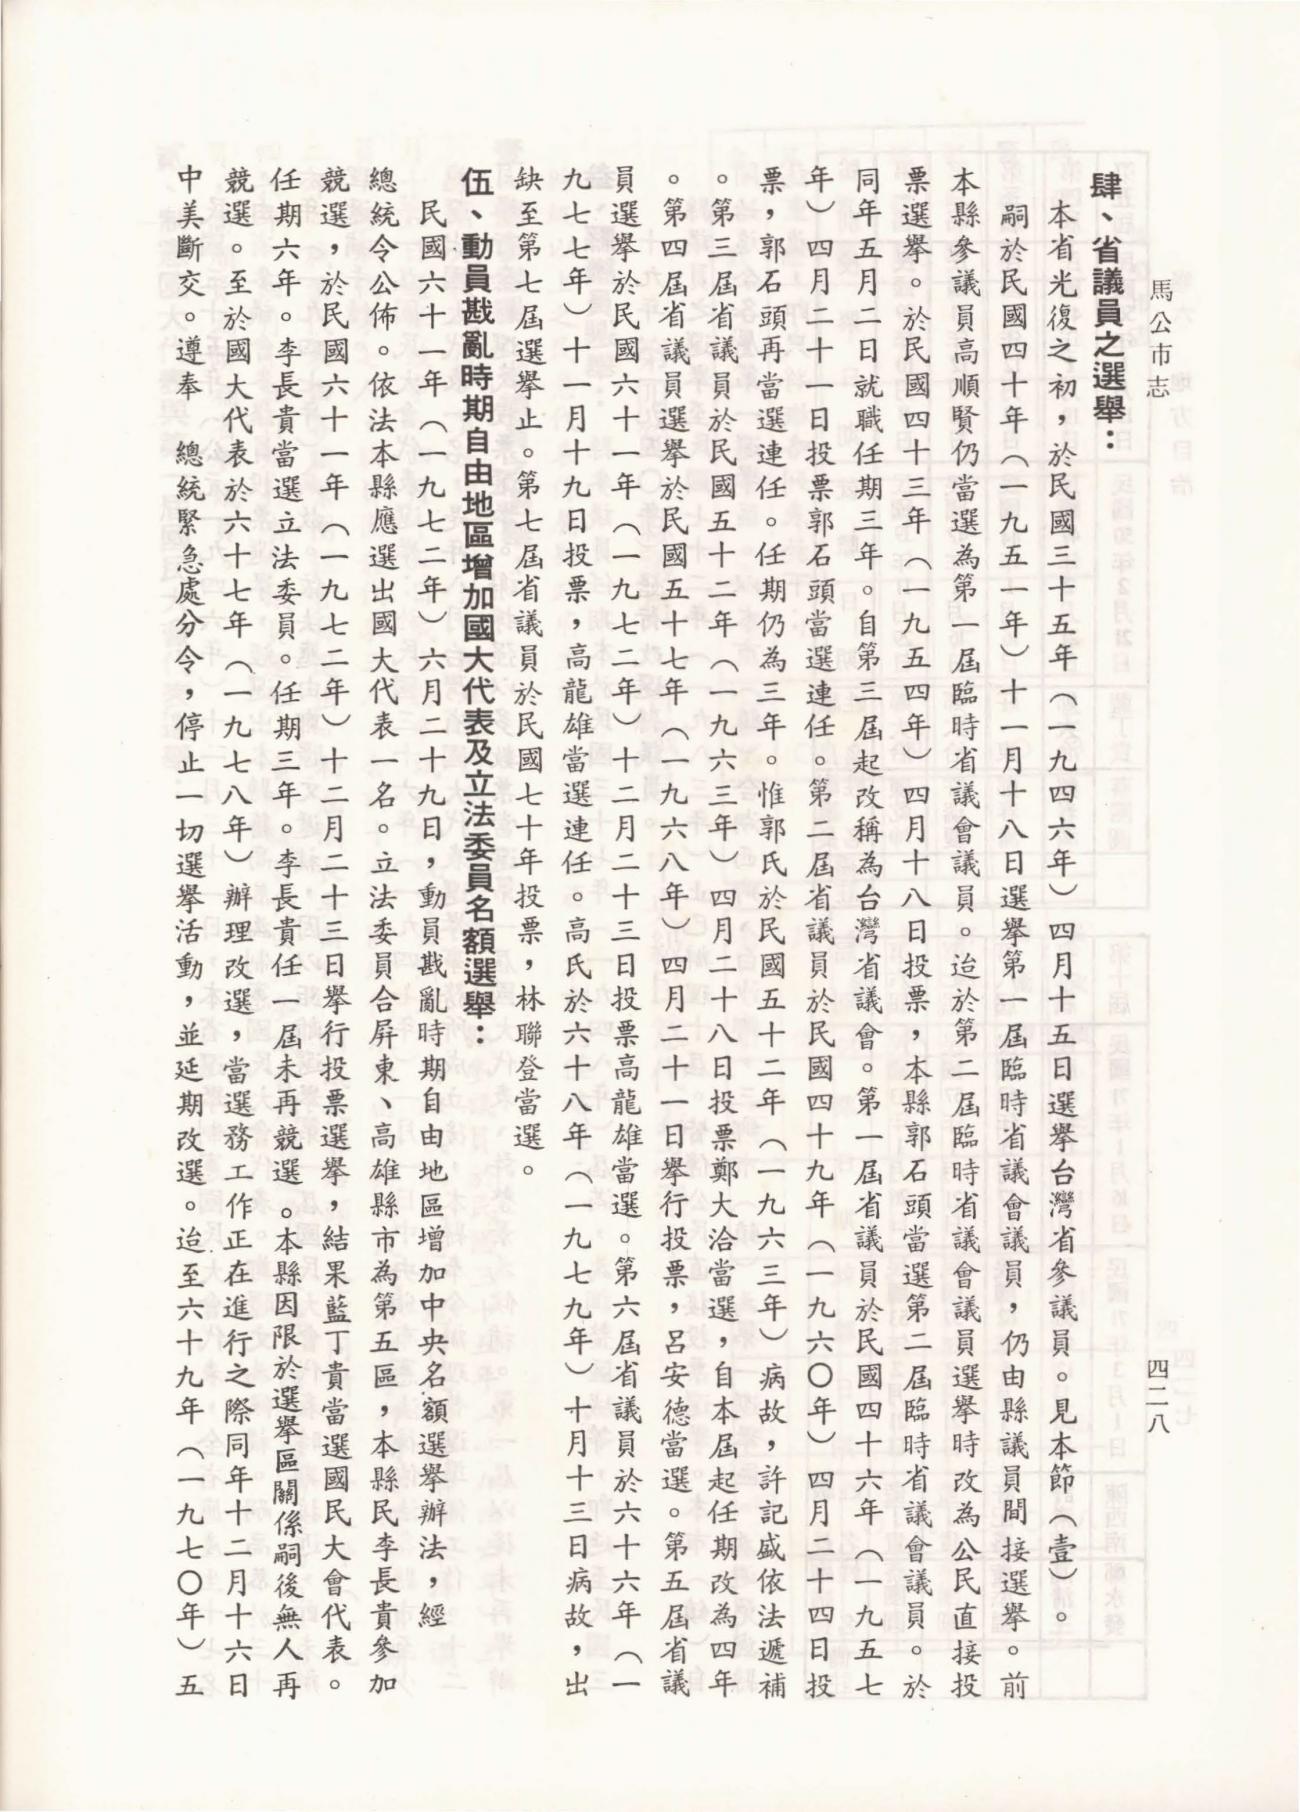 馬公市志
四二八
肆、省議員之選舉：
本省光復之初，於民國三十五年（一九四六年）四月十五日選舉台灣省參議員。見本節（壹）。
嗣於民國四十年（一九五一年）十一月十八日選舉第一屆臨時省議會議員，仍由縣議員間接選舉。前
本縣參議員高順賢仍當選為第一屆臨時省議會議員。迨於第二屆臨時省議會議員選舉時改為公民直接投
票選舉。於民國四十三年（一九五四年）四月十八日投票，本縣郭石頭當選第二屆臨時省議會議員。於
同年五月二日就職任期三年。自第三屆起改稱為台灣省議會。第一屆省議員於民國四十六年（一九五七
年）四月二十一日投票郭石頭當選連任。第二屆省議員於民國四十九年（一九六〇年）四月二十四日投
票，郭石頭再當選連任。任期仍為三年。惟郭氏於民國五十二年（一九六三年）病故，許記盛依法遞補
。第三屆省議員於民國五十二年（一九六三年）四月二十八日投票鄭大洽當選，自本屆起任期改為四年
。第四屆省議員選舉於民國五十七年（一九六八年）四月二十一日舉行投票，呂安德當選。第五屆省議
員選舉於民國六十一年（一九七二年）十二月二十三日投票高龍雄當選。第六屆省議員於六十六年（一
九七七年）十一月十九日投票，高龍雄當選連任。高氏於六十八年（一九七九年）十月十三日病故，出
缺至第七屆選舉止。第七屆省議員於民國七十年投票，林聯登當選。
伍、動員戡亂時期自由地區增加國大代表及立法委員名額選舉：
民國六十一年（一九七二年）六月二十九日，動員戡亂時期自由地區增加中央名額選舉辦法，經
總統令公佈。依法本縣應選出國大代表一名。立法委員合屏東、高雄縣市為第五區，本縣民李長貴參加
競選，於民國六十一年（一九七二年）十二月二十三日舉行投票選舉，結果藍丁貴當選國民大會代表。
任期六年。李長貴當選立法委員。任期三年。李長貴任一屆未再競選。本縣因限於選舉區關係嗣後無人再
競選。至於國大代表於六十七年（一九七八年）辦理改選，當選務工作正在進行之際同年十二月十六日
中美斷交。遵奉　總統緊急處分令，停止一切選舉活動，並延期改選。迨至六十九年（一九七〇年）五